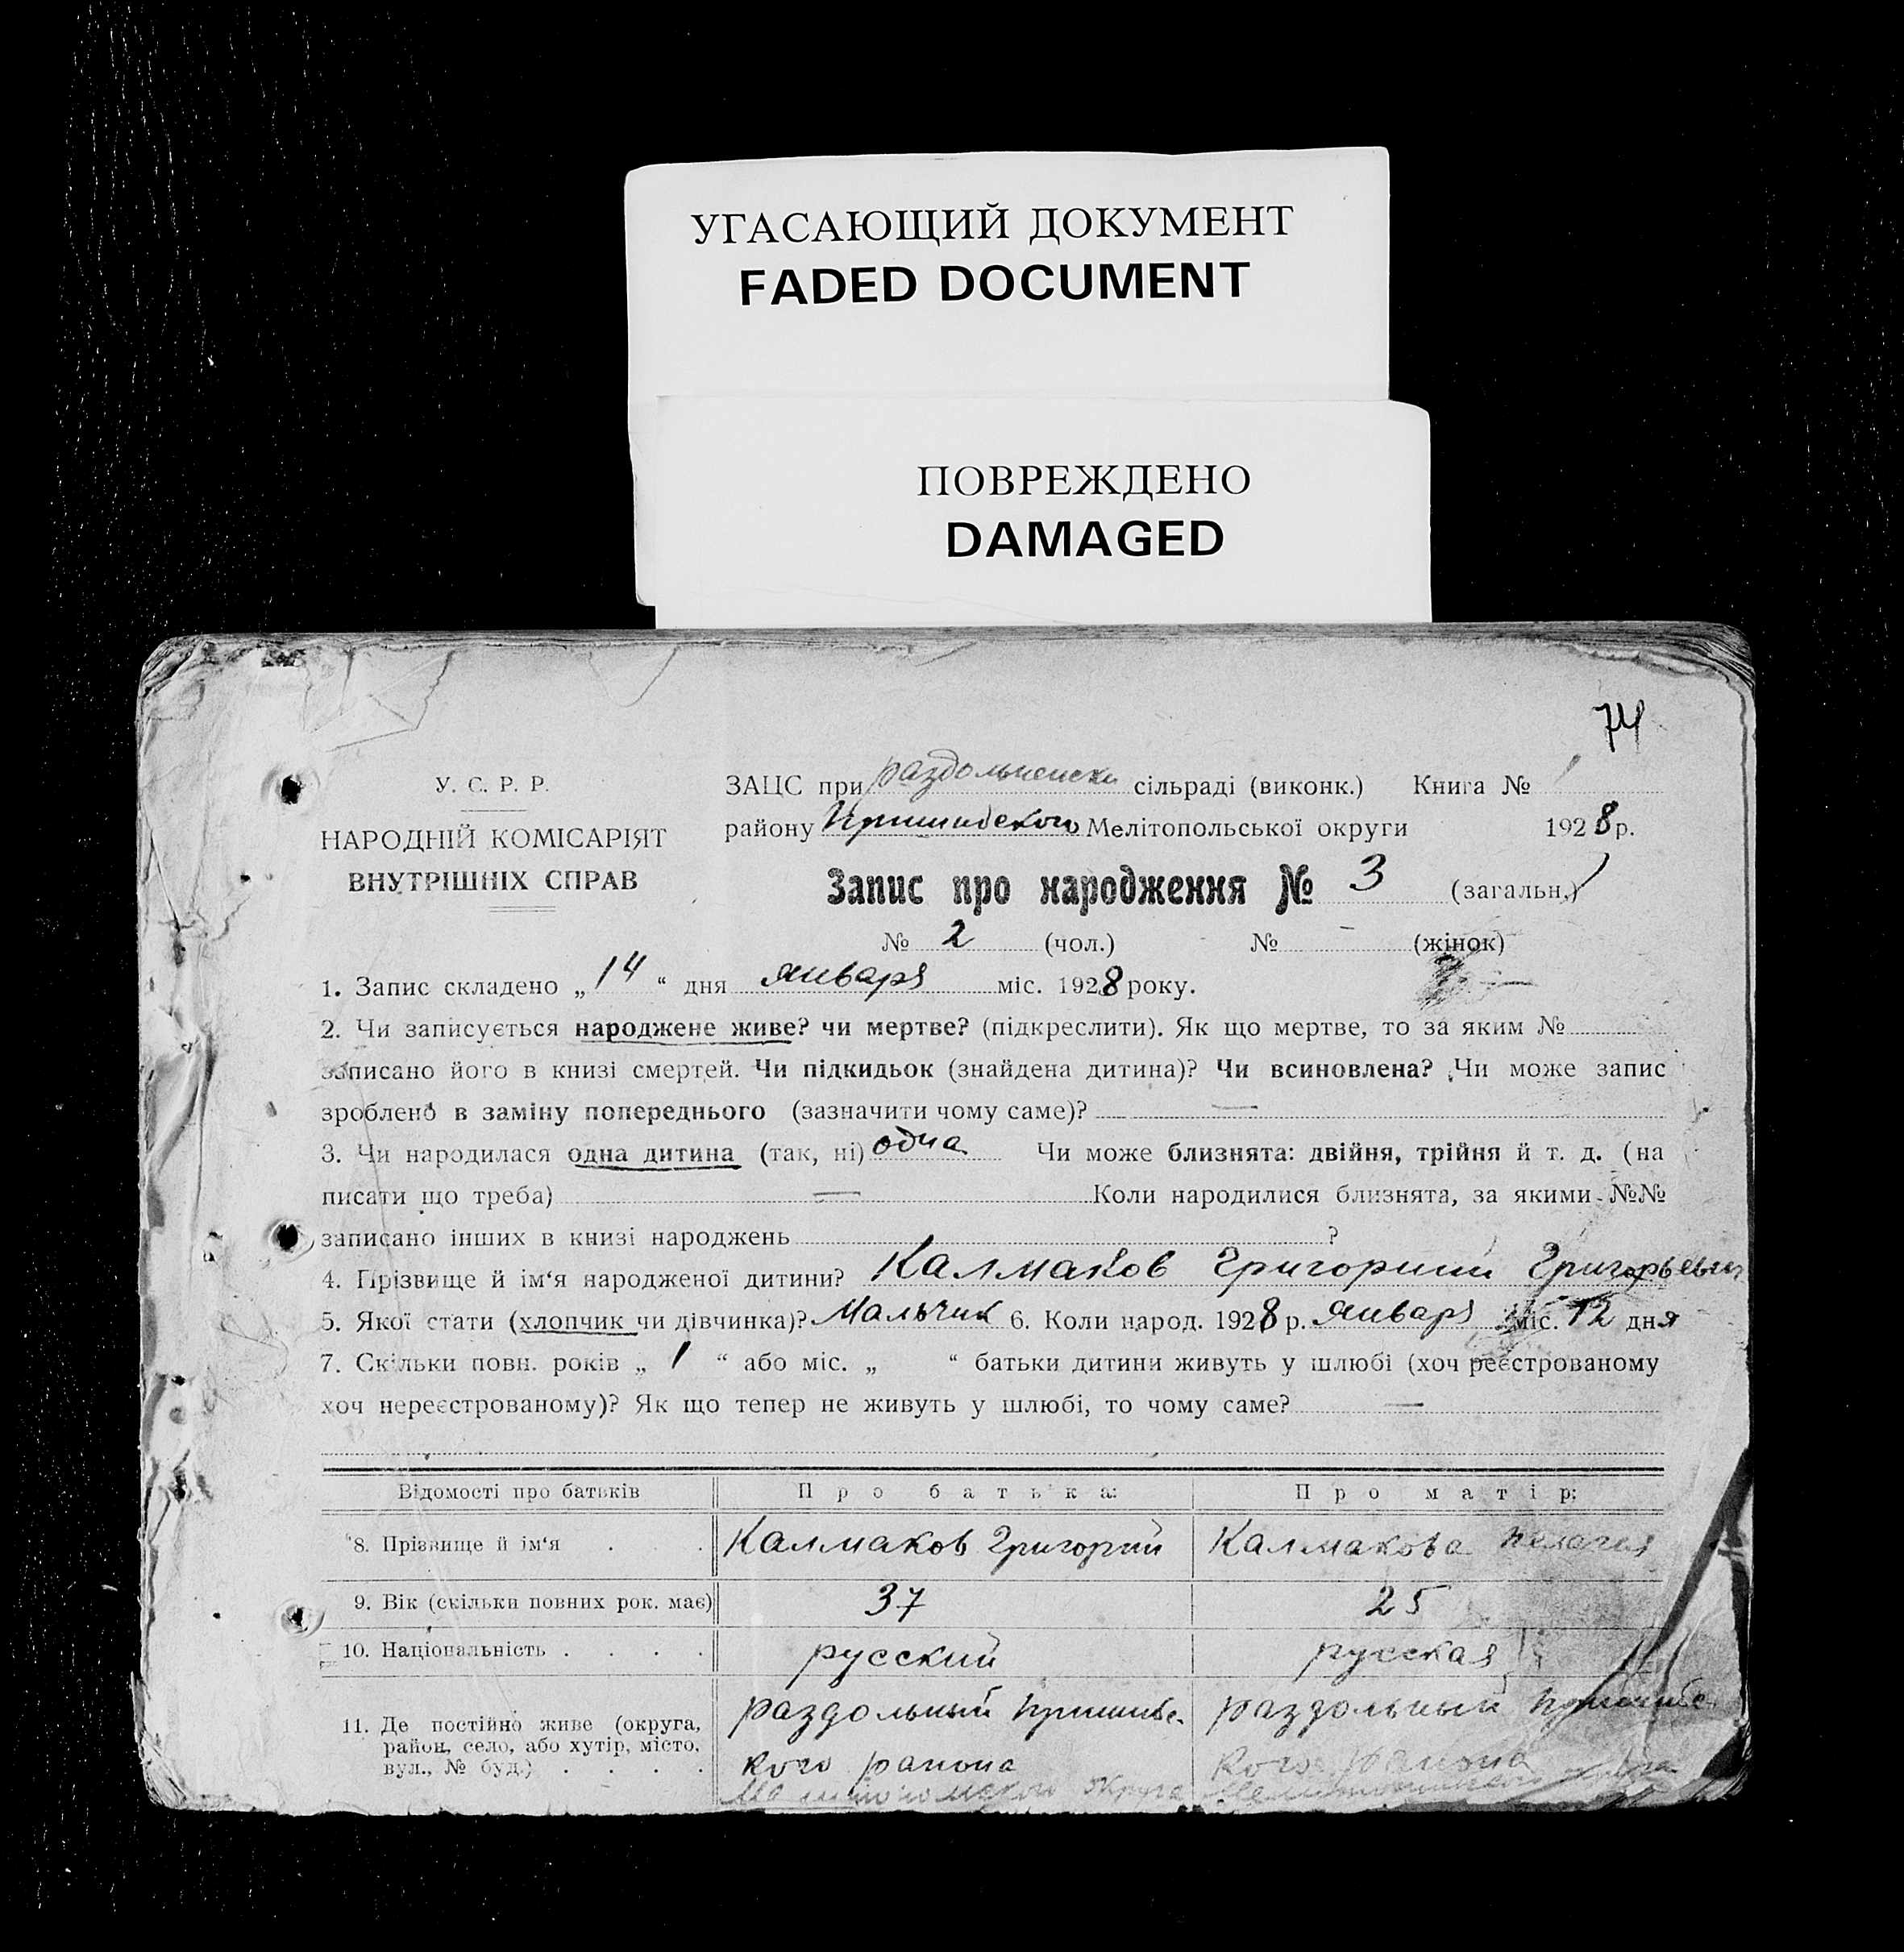 УГАСАЮЩИЙ ДОКУМЕНТ
FADED DOCUMENT
ПОВРЕЖДЕНО
DAMAGED
74
У. С. Р. Р.
НАРОДНІЙ КОМІСАРІЯТ
ВНУТРІШНІХ СПРАВ
ЗАЦС при раздольненски сільраді (виконк.) Книга №
району Пришибского Мелітопольської округи 1928 р.
Запис про народження № 3 (загальн.)
№ 2 (чол.) № — (жінок)
1. Запис складено „14“ дня января міс. 1928 року.
2. Чи записується народжене живе? чи мертве? (підкреслити). Як що мертве, то за яким №
записано його в книзі смертей. Чи підкидьок (знайдена дитина)? Чи всиновлена? Чи може запис
зроблено в заміну попереднього (зазначити чому саме)? —
3. Чи народилася одна дитина (так, ні) одна Чи може близнята: двійня, трійня й т. д. (на
писати що треба) — Коли народилися близнята, за якими №№
записано інших в книзі народжень ?
4. Прізвище й ім‘я народженої дитини? Калмаков Григорий Григорьевич
5. Якої стати (хлопчик чи дівчинка)? Мальчик 6. Коли народ. 1928 р. января міс. 12 дня
7. Скільки повн. років „ 1 “ або міс. „ “ батьки дитини живуть у шлюбі (хоч реєстрованому
хоч нереєстрованому)? Як що тепер не живуть у шлюбі, то чому саме? —
Відомості про батьків Про батька: Про матір:
8. Прізвище й ім‘я . . . Калмаков Григорий Калмакова Пелагея
9. Вік (скільки повних рок. має) 37 25
10. Національність . . . . русский русская
11. Де постійно живе (округа, район, село, або хутір, місто, вул., № буд.) . . . .
раздольный Пришибс- раздольный Пришибс-
кого района кого района
Мелитопольской округа Мелитопольской